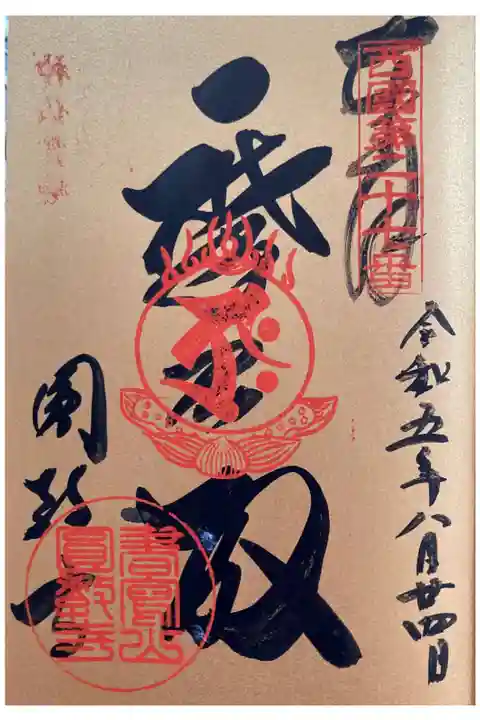 奉拝
西國第二十七番
令和五年八月廿四日
摩尼殿
圓教寺
書寫山圓教寺